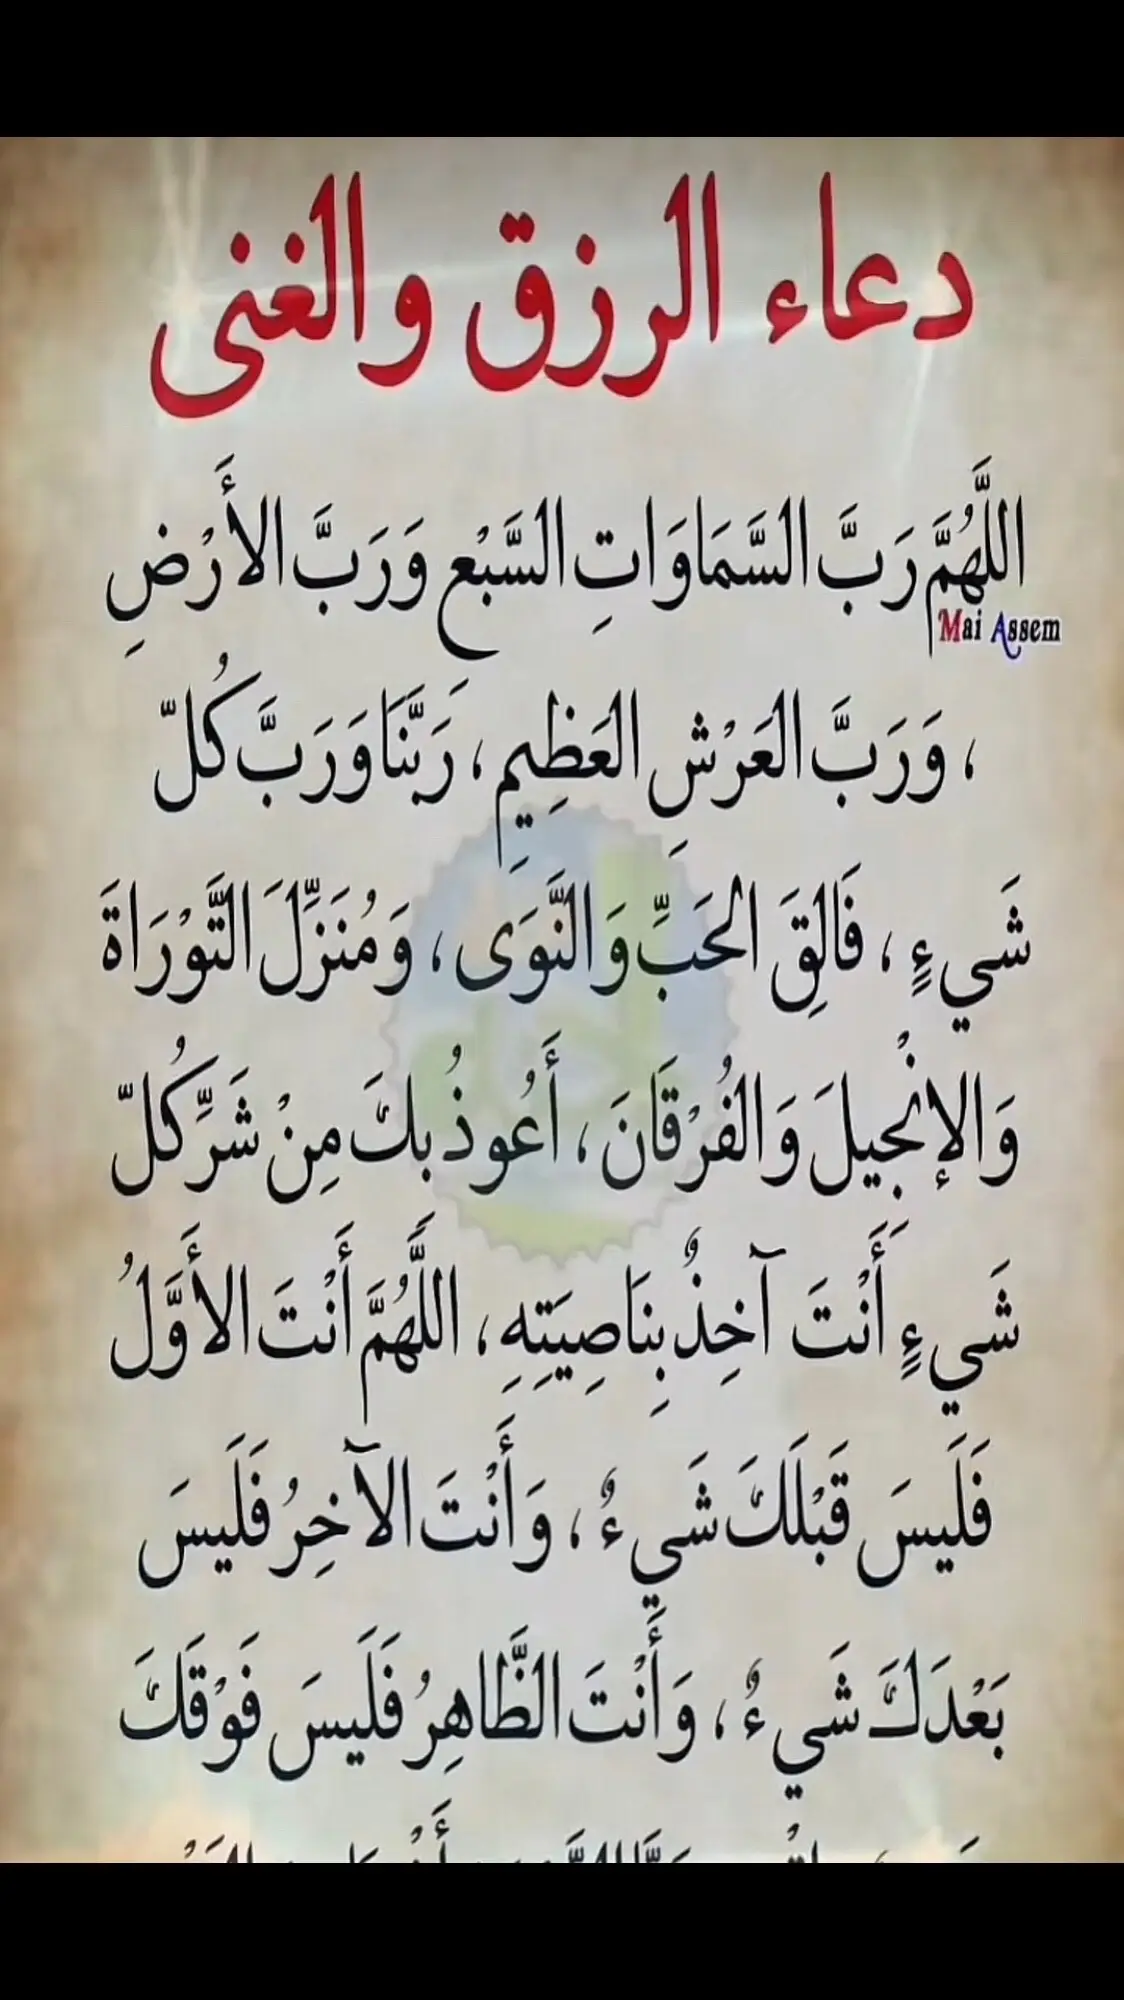 دعاء الرزق والغنى
اللَّهُمَّ رَبَّ السَّمَاوَاتِ السَّبْعِ وَرَبَّ الأَرْضِ
Mai Assem
، وَرَبَّ العَرْشِ العَظِيمِ ، رَبَّنَا وَرَبَّ كُلّ
شَيءٍ ، فَالِقَ الحَبِّ وَالنَّوَى ، وَمُنَزِّلَ التَّوْرَاةَ
وَالإنْجِيلَ وَالفُرْقَانَ ، أَعُوذُ بِكَ مِنْ شَرِّ كُلّ
شَيءٍ أَنْتَ آخِذٌ بِنَاصِيَتِهِ ، اللَّهُمَّ أَنْتَ الأَوَّلُ
فَلَيسَ قَبْلَكَ شَيءٌ ، وَأَنْتَ الآخِرُ فَلَيسَ
بَعْدَكَ شَيءٌ ، وَأَنْتَ الظَّاهِرُ فَلَيسَ فَوْقَكَ